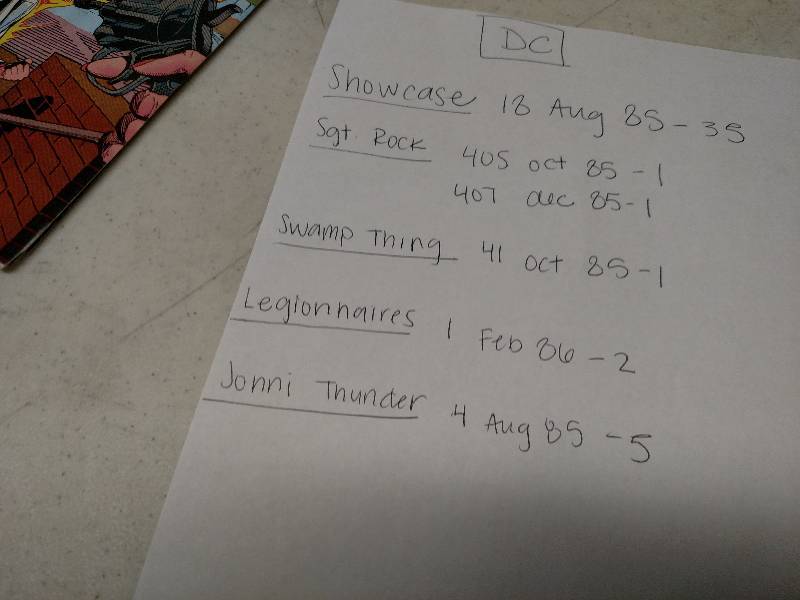 DC
Showcase 18 Aug 85 - 35
Sgt. Rock 405 oct 85 - 1
407 dec 85 - 1
Swamp Thing 41 oct 85 - 1
Legionnaires 1 Feb 86 - 2
Jonni Thunder 4 Aug 85 - 5